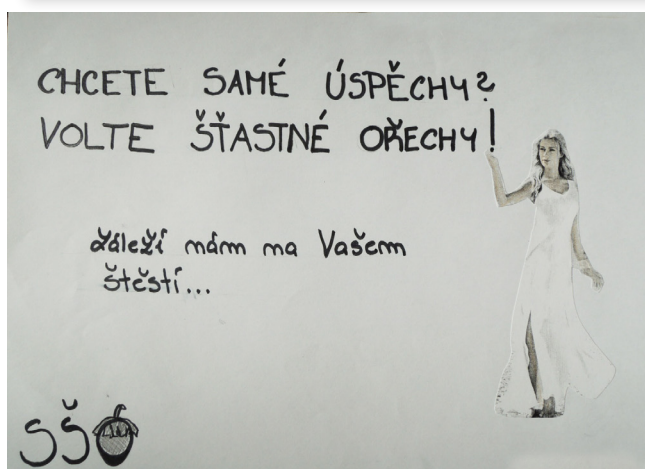 CHCETE SAMÉ ÚSPĚCHY?
VOLTE ŠŤASTNÉ OŘECHY!
záleží nám na Vašem
štěstí...
SŠ